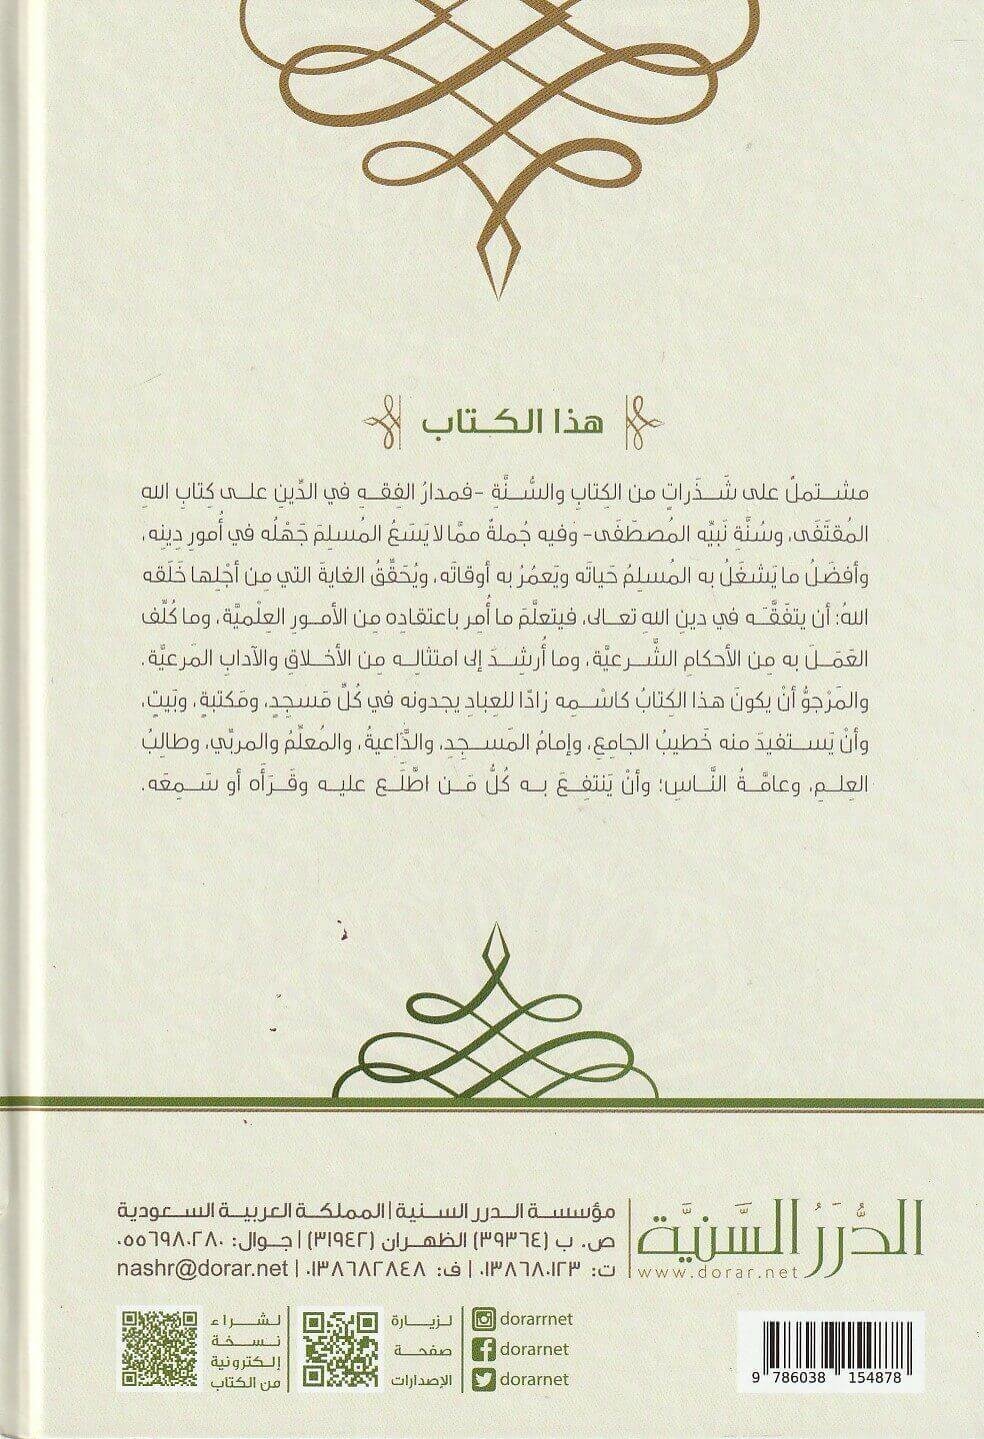 هذا الكتاب
مشتملٌ على شَذَراتٍ من الكِتابِ والسُّنَّةِ -فمدارُ الفِقهِ في الدِّينِ على كِتابِ اللهِ
المُقتَفَى، وسُنَّةِ نَبيِّه المُصطَفَى- وفيه جُملةٌ ممَّا لا يَسَعُ المُسلِمَ جَهْلُه في أُمورِ دِينِه،
وأفضَلُ ما يَشغَلُ به المُسلِمُ حَياتَه ويَعمُرُ به أوقاتَه، ويُحَقِّقُ الغايةَ التي مِن أجْلِها خَلَقه
اللهُ: أن يتفَقَّهَ في دينِ اللهِ تعالى، فيتعلَّمَ ما أُمِر باعتقادِه مِن الأمورِ العِلْميَّة، وما كُلِّف
العَمَلَ به مِن الأحكامِ الشَّرعيَّة، وما أُرشِدَ إلى امتثالِه مِن الأخلاقِ والآدابِ المَرعيَّة.
والمَرْجوُّ أنْ يكونَ هذا الكِتابُ كاسْمِه زادًا للعِبادِ يجدونه في كُلِّ مَسجِدٍ، ومَكتبةٍ، وبَيتٍ،
وأنْ يَستفيدَ منه خَطيبُ الجامِعِ، وإمامُ المَسجِدِ، والدَّاعيةُ، والمُعلِّمُ والمربِّي، وطالِبُ
العِلمِ، وعامَّةُ النَّاسِ؛ وأنْ يَنتفِعَ به كُلُّ مَن اطَّلَع عليه وقَرَأَه أو سَمِعَه.
الدُّرَرُ السَّنيَّة
www.dorar.net
مؤسسة الدرر السنية | المملكة العربية السعودية
ص. ب (٣٩٣٦٤) الظهران (٣١٩٤٢) | جوال: ٠٥٥٦٩٨٠٢٨٠
ت: ٠١٣٨٦٨٠١٢٣ | ف: ٠١٣٨٦٨٢٨٤٨ | nashr@dorar.net
dorarrnet
dorarnet
dorarnet
لزيارة
صفحة
الإصدارات
لشراء
نسخة
إلكترونية
من الكتاب
9 786038 154878